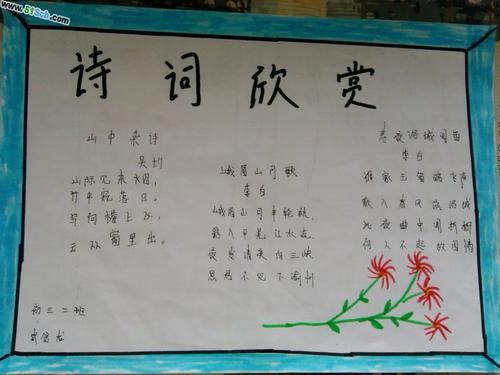 www.51Sob.com
诗词欣赏
山中杂诗
吴均
山际见来烟，
竹中窥落日。
鸟向檐上飞，
云从窗里出。
峨眉山月歌
李白
峨眉山月半轮秋，
影入平羌江水流。
夜发清溪向三峡
思君不见下渝州
春夜洛城闻笛
李白
谁家玉笛暗飞声
散入春风满洛城
此夜曲中闻折柳
何人不起故园情
初三二班